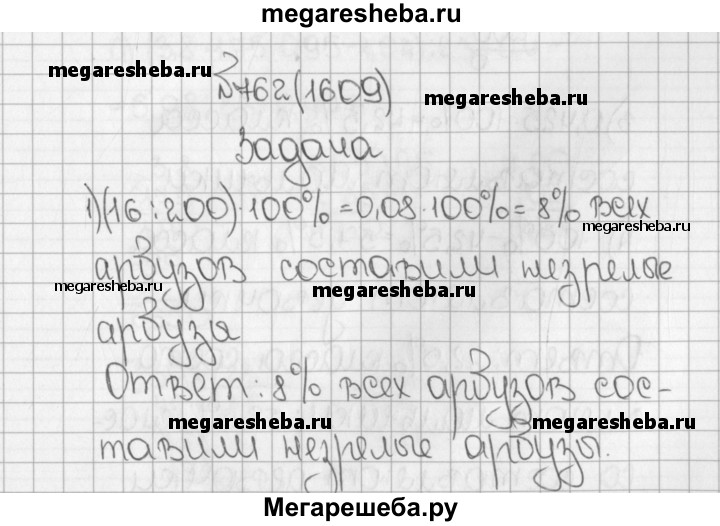 megaresheba.ru
megaresheba.ru
№762(1609)
megaresheba.ru
Задача
1)(16:200)·100%=0,08·100%=8% всех
megaresheba.ru
арбузов составили незрелые
megaresheba.ru
megaresheba.ru
арбузы
Ответ: 8% всех арбузов сос-
megaresheba.ru
megaresheba.ru
тавили незрелые арбузы.
Мегарешеба.ру